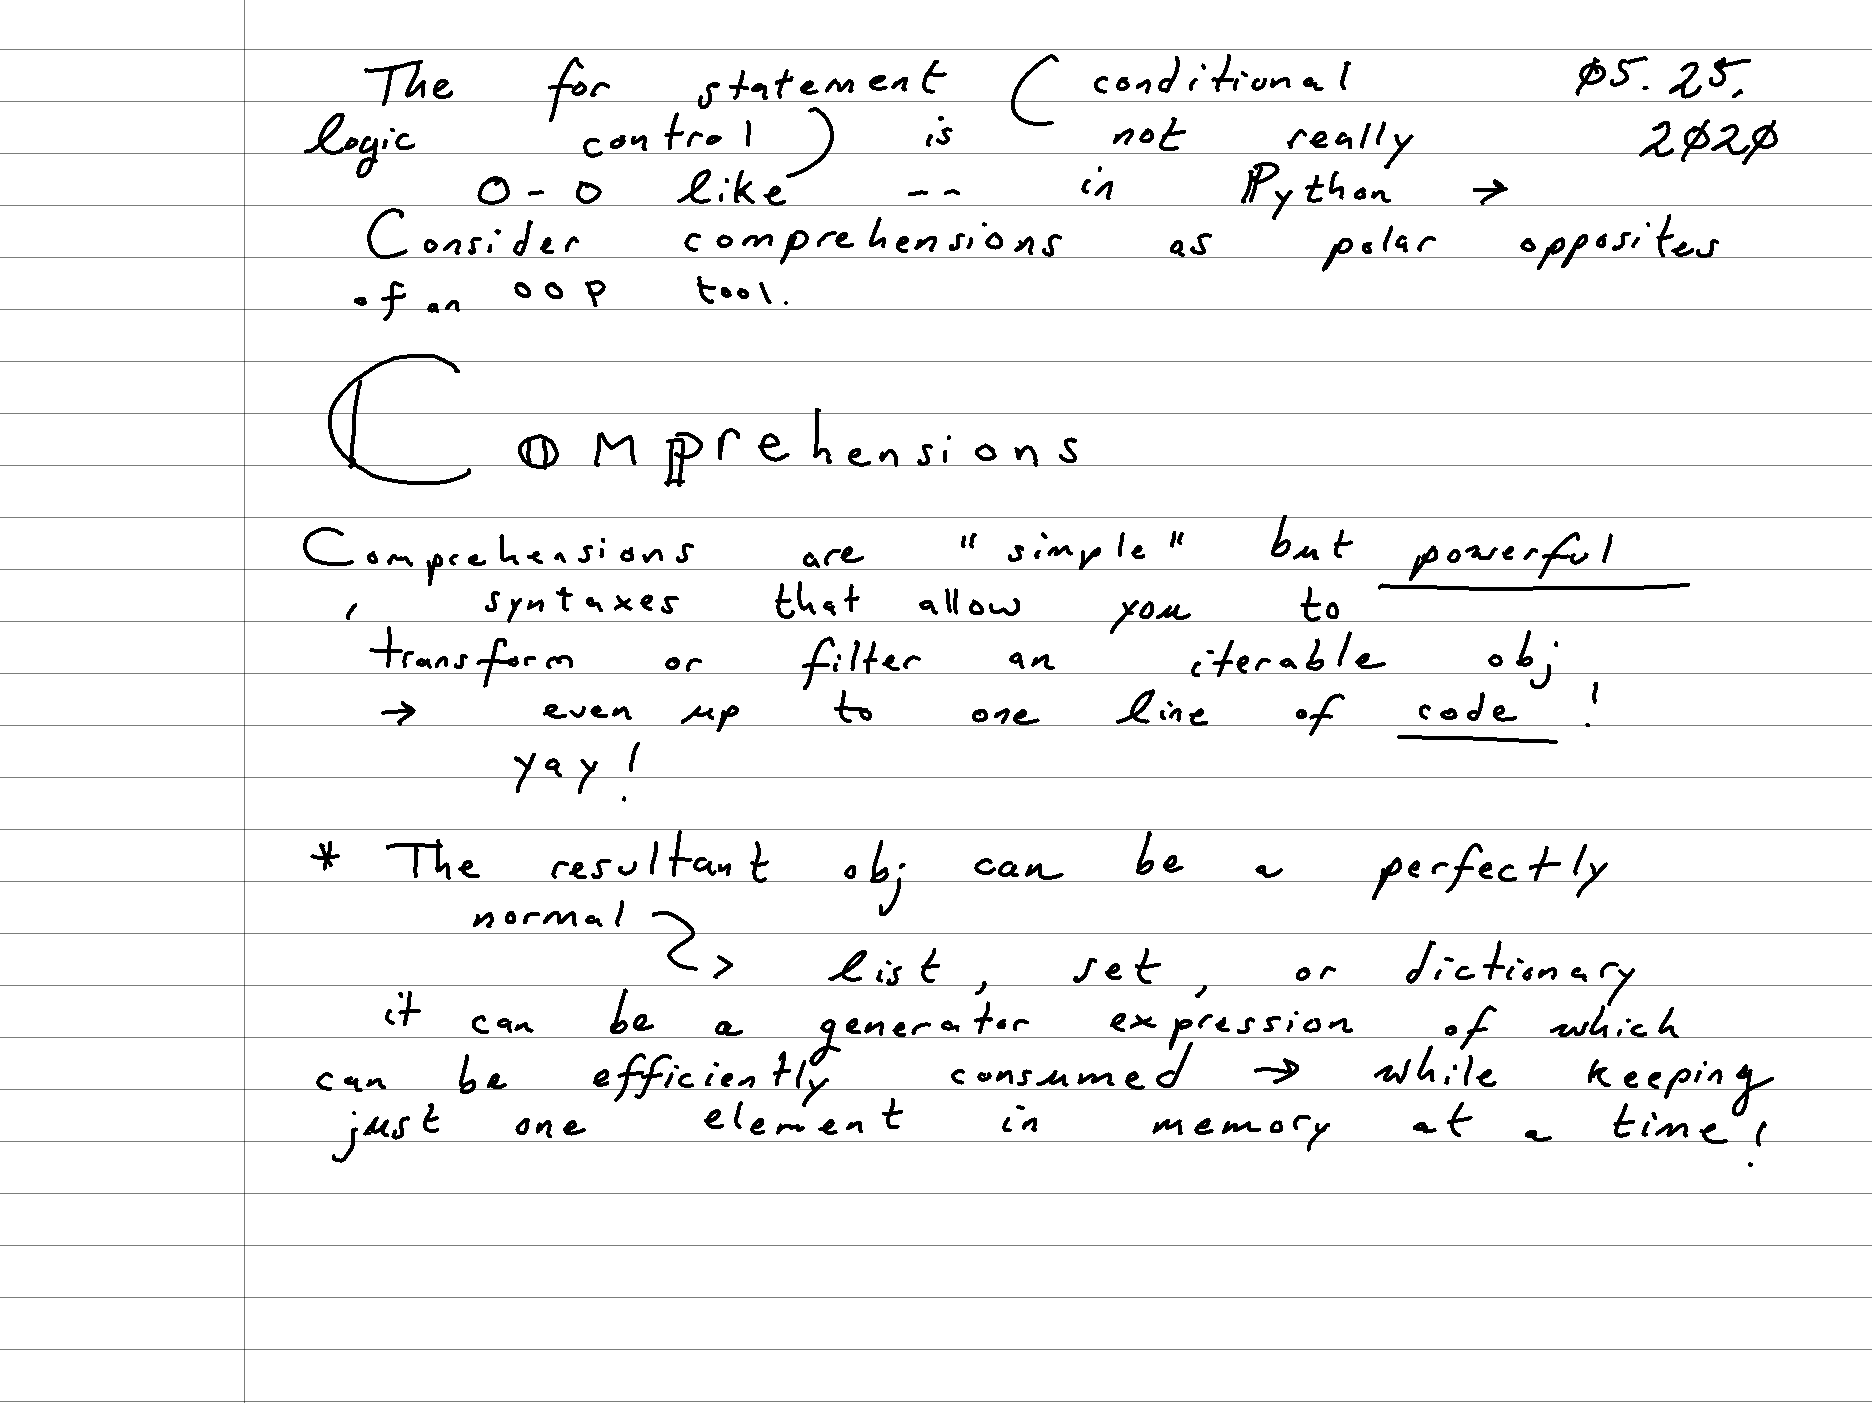 The for statement ( conditional
ø5. 25.
logic control ) is not really
2ø2ø
O-O like -- in Python →
Consider comprehensions as polar opposites
of an OOP tool.
Comprehensions
Comprehensions are "simple" but powerful
, syntaxes that allow you to
transform or filter an iterable obj
→ even up to one line of code !
yay!
* The resultant obj can be a perfectly
normal
> list, set, or dictionary
it can be a generator expression of which
can be efficiently consumed → while keeping
just one element in memory at a time!